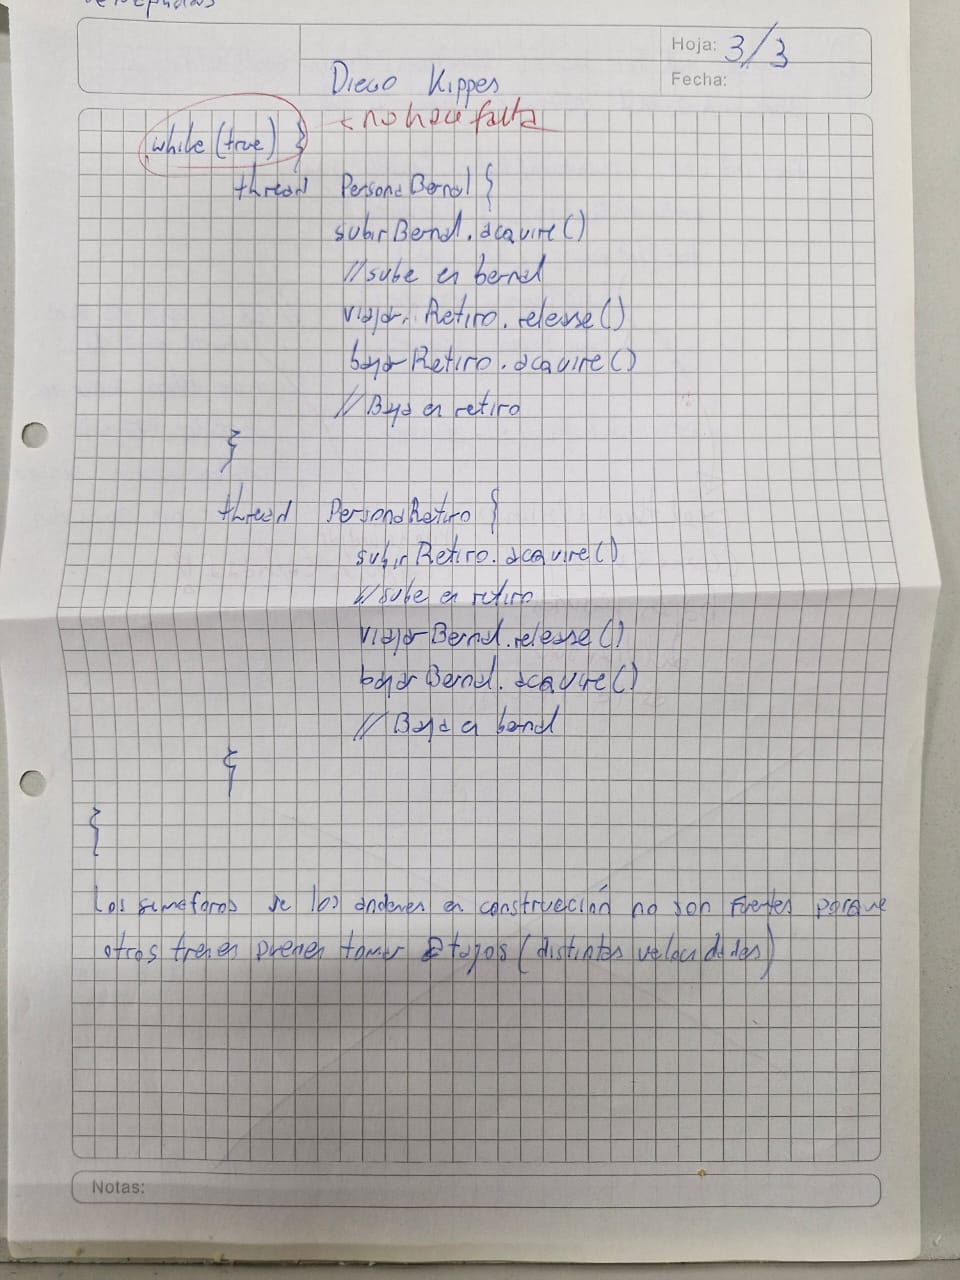 Hoja: 3/3
Diego Kippes
Fecha:
while (true) {
< no hace falta
thread PersonaBernal {
subirBernal.acquire()
// sube en bernal
viajarRetiro.release()
bajarRetiro.acquire()
// Baja en retiro
}
thread PersonaRetiro {
subirRetiro.acquire()
// sube en retiro
viajarBernal.release()
bajarBernal.acquire()
// Baja en bernal
}
}
Los semaforos de los andenes en construcción no son fuertes porque
otros trenes pueden tomar atajos (distintas velocidades)
Notas: